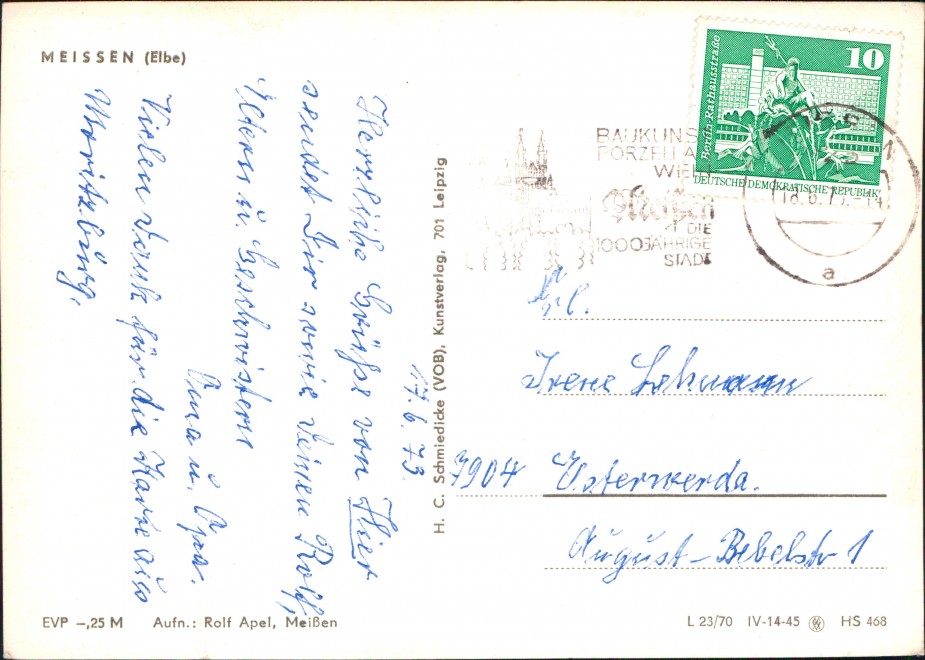 MEISSEN (Elbe)
17.6.73.
Herzliche Grüße von Hier
sendet Dir sowie deinen Rolf,
Eltern u. Geschwistern
Oma u. Opa.
Vielen Dank für die Karte aus
Moritzburg.
H. C. Schmiedicke (VOB), Kunstverlag, 701 Leipzig
BAUKUNS
PORZELLA
WEIN
Meißen
DIE
1000 JÄHRIGE
STADT
10
Berlin-Rathausstraße
DEUTSCHE DEMOKRATISCHE REPUBLIK
a
Frl.
Irene Lehmann
7904 Elsterwerda.
August-Bebelstr 1
EVP –,25 M Aufn.: Rolf Apel, Meißen
L 23/70 IV-14-45 HS 468